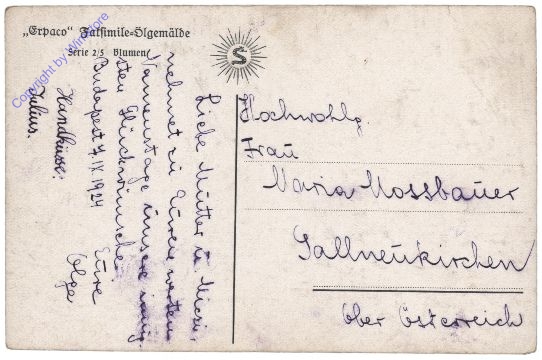 „Erpaco“ Faksimile-Ölgemälde
Serie 2/5 Blumen
S
Copyright by Winstore
Liebe Mutter u. Mizzi,
nehmet zu Eurem werten
Namenstage unsere innig-
sten Glückwünsche
Budapest 7.IX.1924
Eure
Olga
Handküsse:
Julius.
Hochwohlg.
Frau
Maria Mossbauer
Gallneukirchen
Ober Österreich